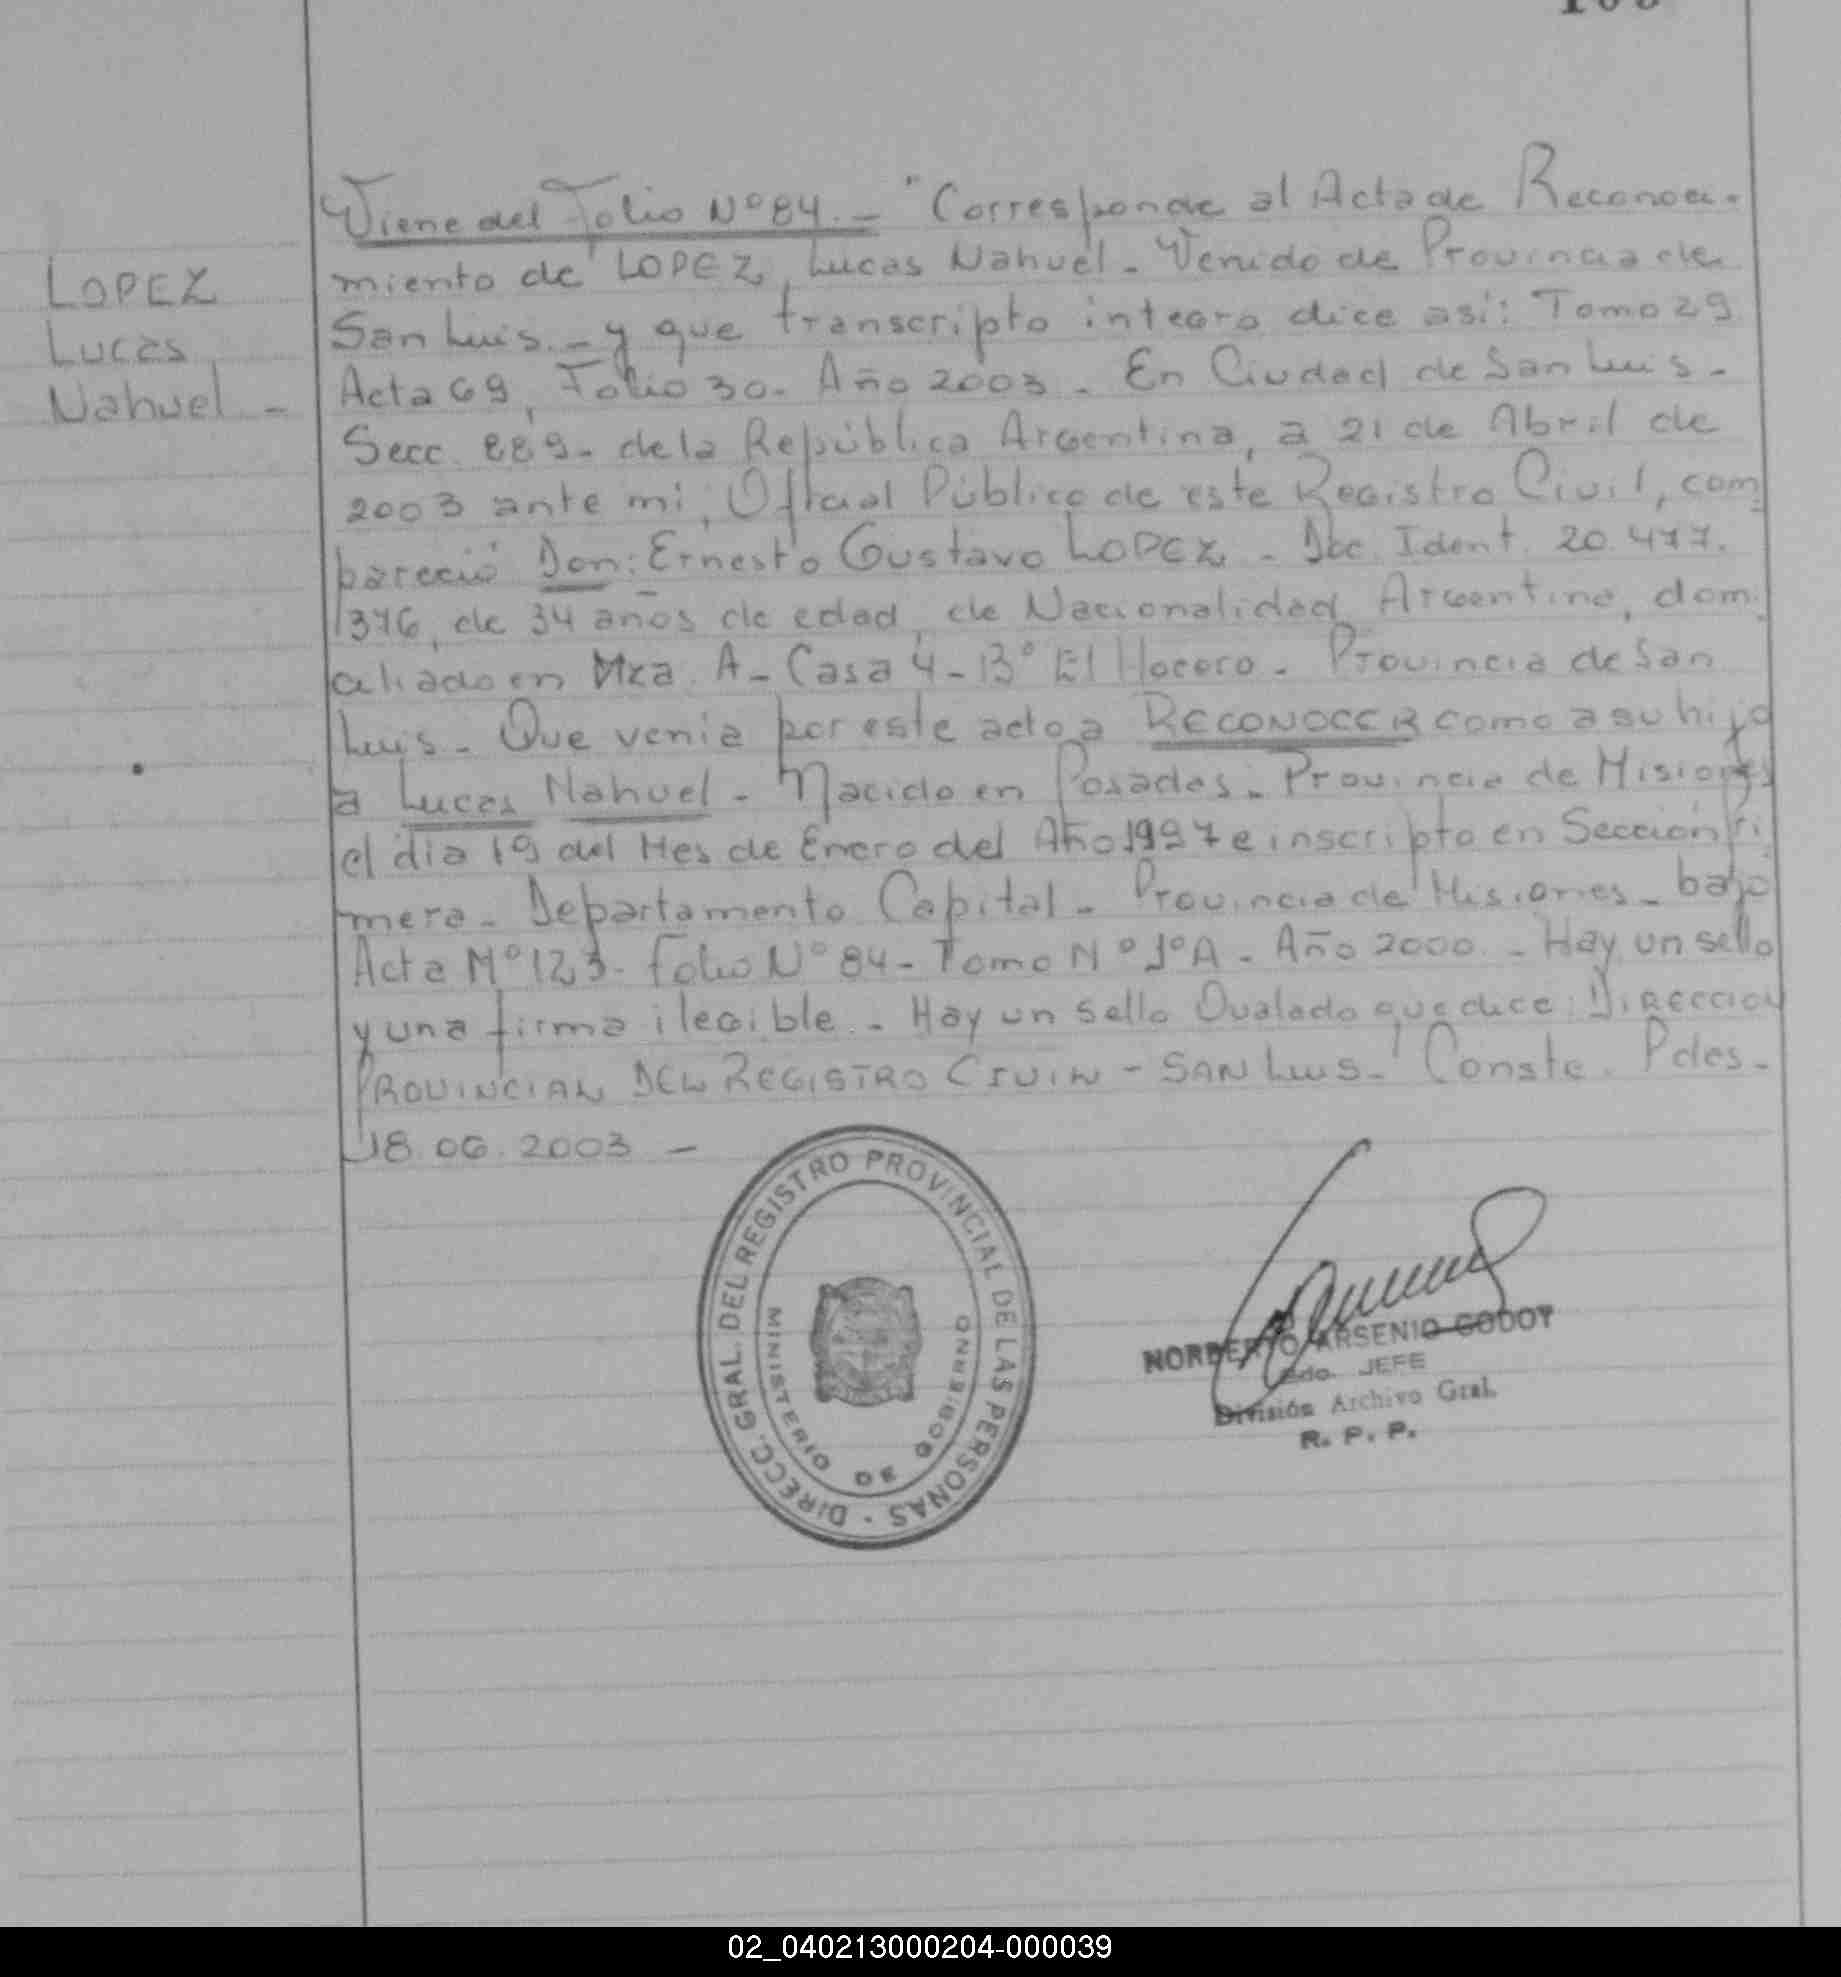 LOPEZ
Lucas
Nahuel -
Viene del Folio Nº 84. - "Corresponde al Acta de Reconoci-
miento de LOPEZ, Lucas Nahuel - Venido de Provincia de
San Luis. - y que transcripto integro dice así: Tomo 29
Acta 69, Folio 30 - Año 2003 - En Ciudad de San Luis -
Secc. 889 - de la República Argentina, a 21 de Abril de
2003 ante mi, Oficial Público de este Registro Civil, com
pareció Don: Ernesto Gustavo LOPEZ - Doc. Ident. 20.477.
376, de 34 años de edad, de Nacionalidad Argentina, dom.
ciliado en Mza. A - Casa 4 - Bº El - Provincia de San
Luis - Que venia por este acto a RECONOCER como a su hijo
a Lucas Nahuel - Nacido en Posadas - Provincia de Misiones
el dia 19 del Mes de Enero del Año 1997 e inscripto en Sección Pri
mera - Departamento Capital - Provincia de Misiones - bajo
Acta Nº 123 - Folio Nº 84 - Tomo Nº 1º A - Año 2000. - Hay un sello
y una firma ilegible. - Hay un sello Ovalado que dice: DIRECCION
PROVINCIAL DEL REGISTRO CIVIL - SAN LUIS - Conste. Pdas -
18.06.2003 -
DIRECC. GRAL. DEL REGISTRO PROVINCIAL DE LAS PERSONAS -
MINISTERIO DE GOBIERNO
NORBERTO ARSENIO GODOY
JEFE
División Archivo Gral.
R. P. P.
02_040213000204-000039